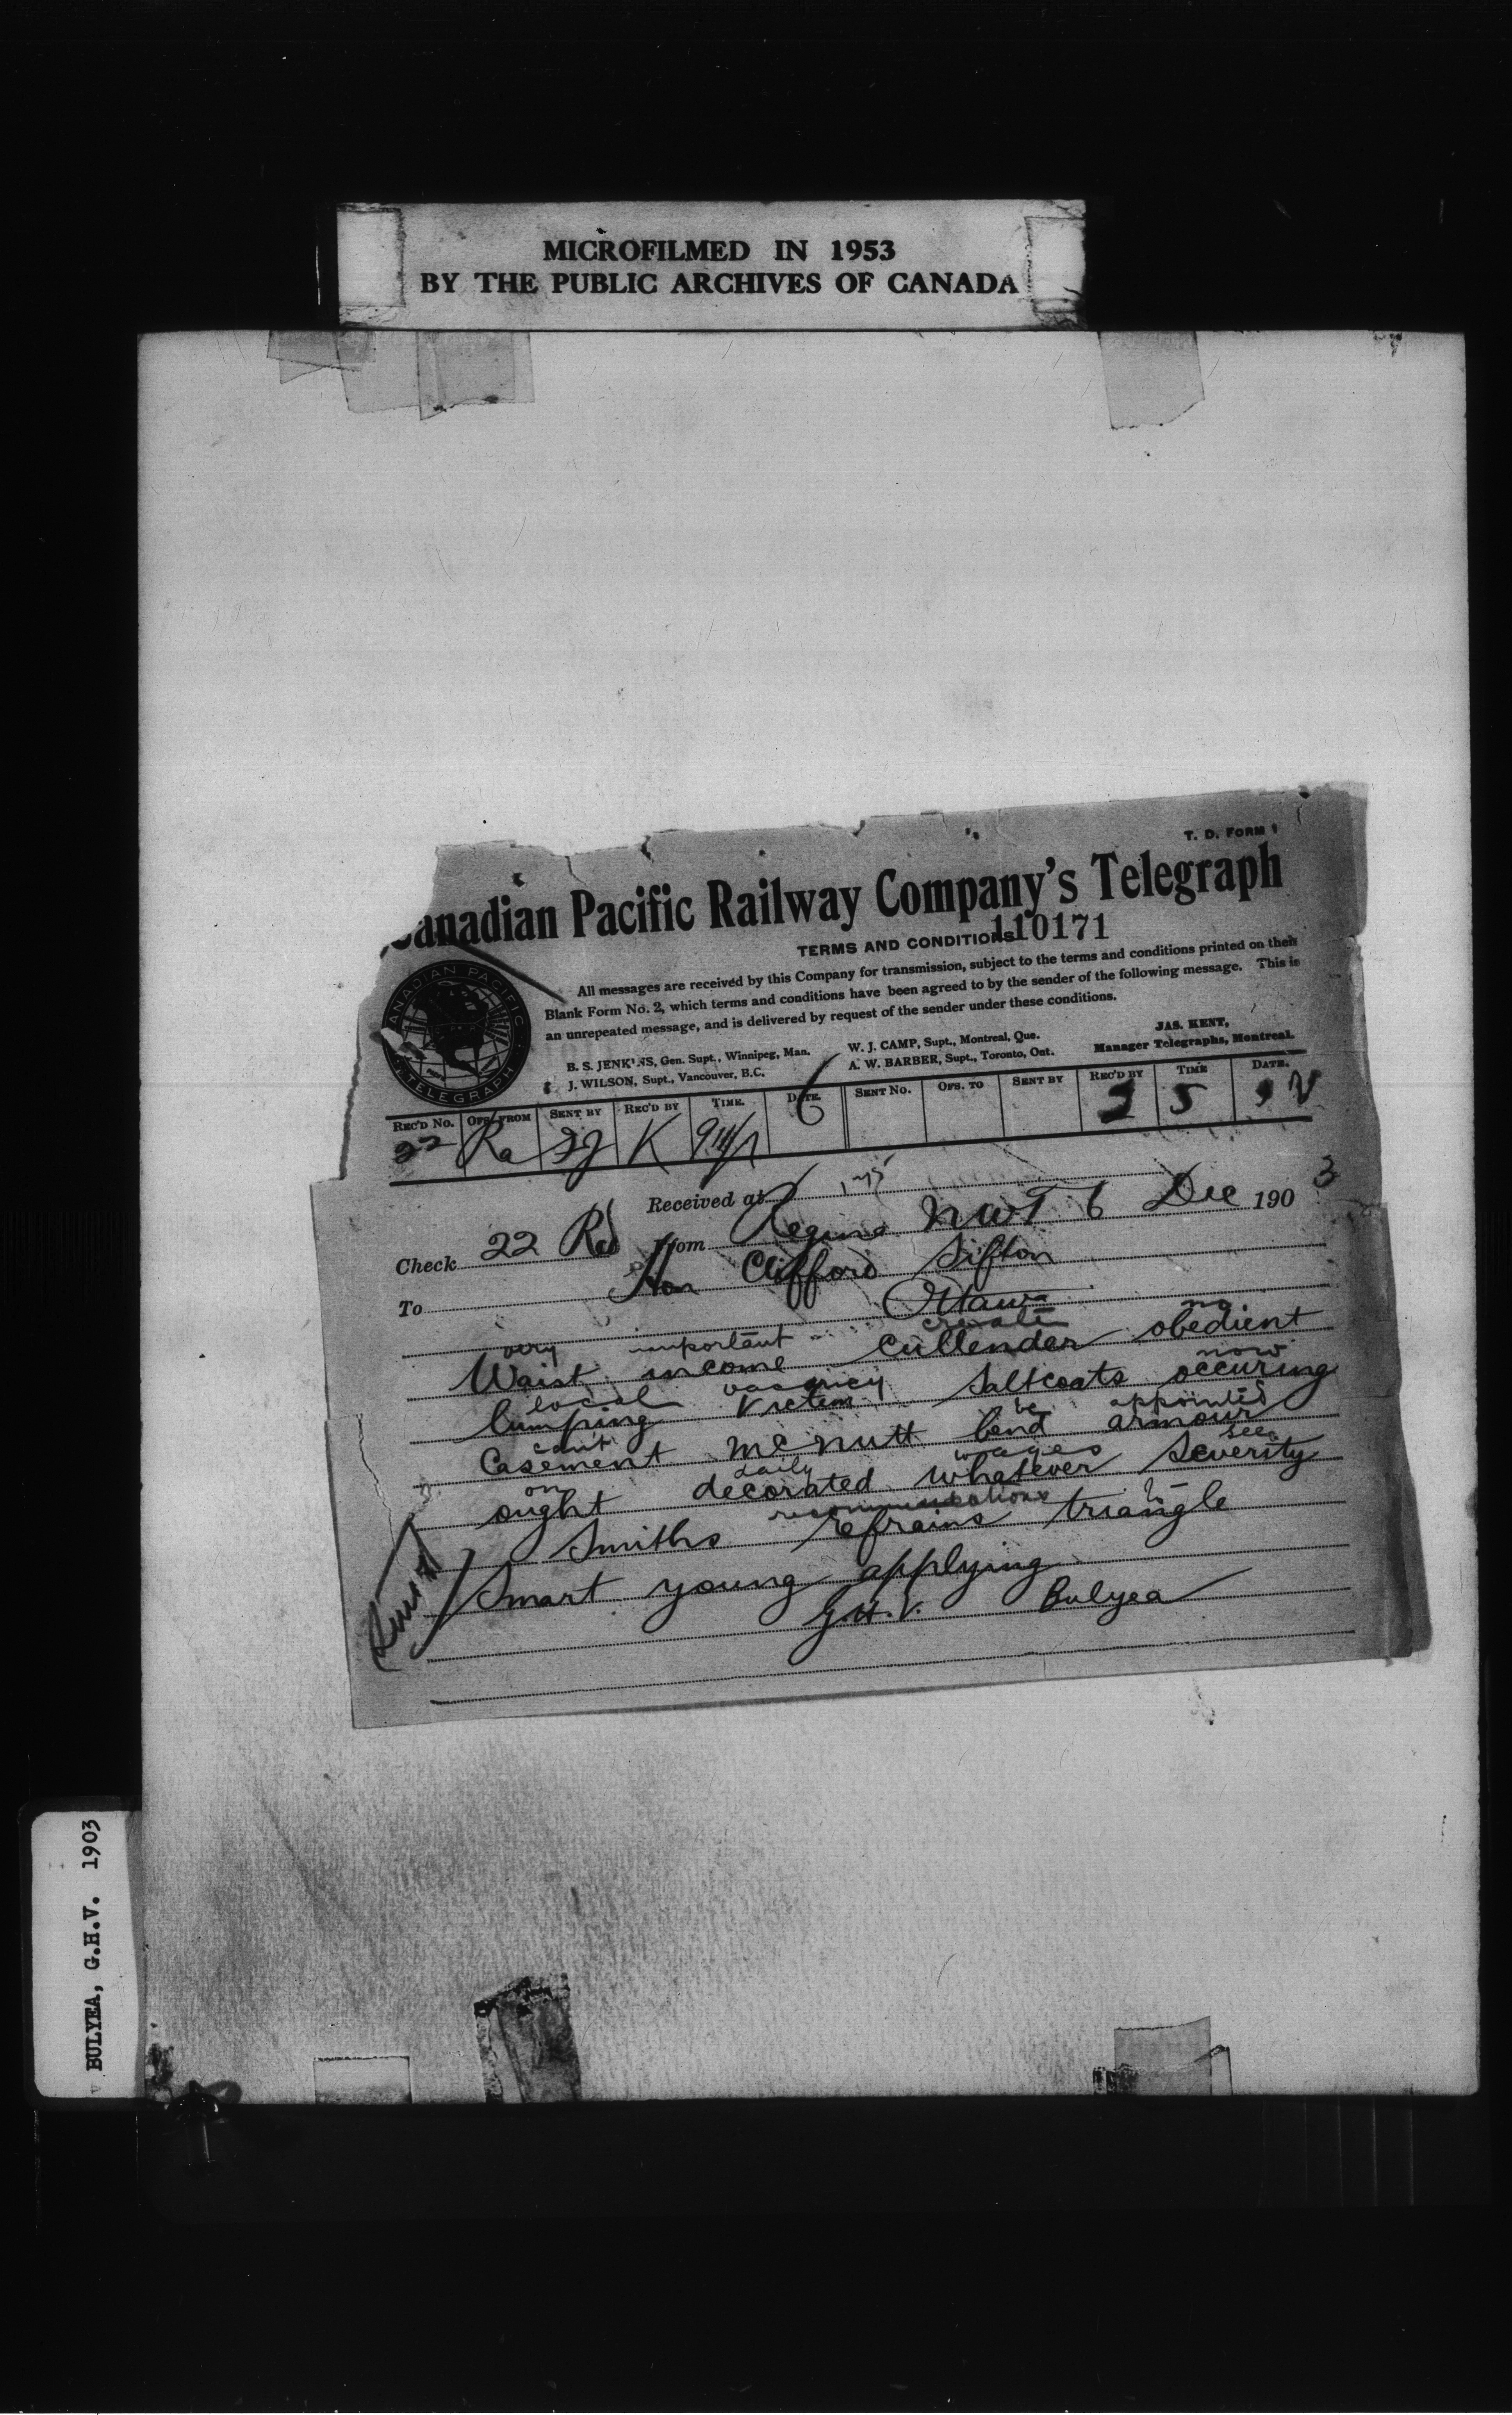 MICROFILMED IN 1953
BY THE PUBLIC ARCHIVES OF CANADA
T. D. FORM 1
Canadian Pacific Railway Company's Telegraph
110171
TERMS AND CONDITIONS
All messages are received by this Company for transmission, subject to the terms and conditions printed on their
Blank Form No. 2, which terms and conditions have been agreed to by the sender of the following message. This is
an unrepeated message, and is delivered by request of the sender under these conditions.
CANADIAN PACIFIC TELEGRAPH
B. S. JENKINS, Gen. Supt., Winnipeg, Man.
J. WILSON, Supt., Vancouver, B.C.
W. J. CAMP, Supt., Montreal, Que.
A. W. BARBER, Supt., Toronto, Ont.
JAS. KENT,
Manager Telegraphs, Montreal.
REC'D No. OFS. FROM SENT BY REC'D BY TIME. DATE. SENT No. OFS. TO SENT BY REC'D BY TIME DATE.
22 Ra K 6 5
Received at
Check 22 Rd From Regina NWT 6 Dec 1903
To Hon Clifford Sifton
Ottawa
very important create no
Waist income cullender obedient
local vacancy now
lumping victim Saltcoats occuring
can't be appointed
Casement McNutt bend armour
on daily wages see
ought decorated whatever severity
recommendations
Smiths refrains triangle
Smart young applying
G.H.V. Bulyea
BULYEA, G.H.V. 1903